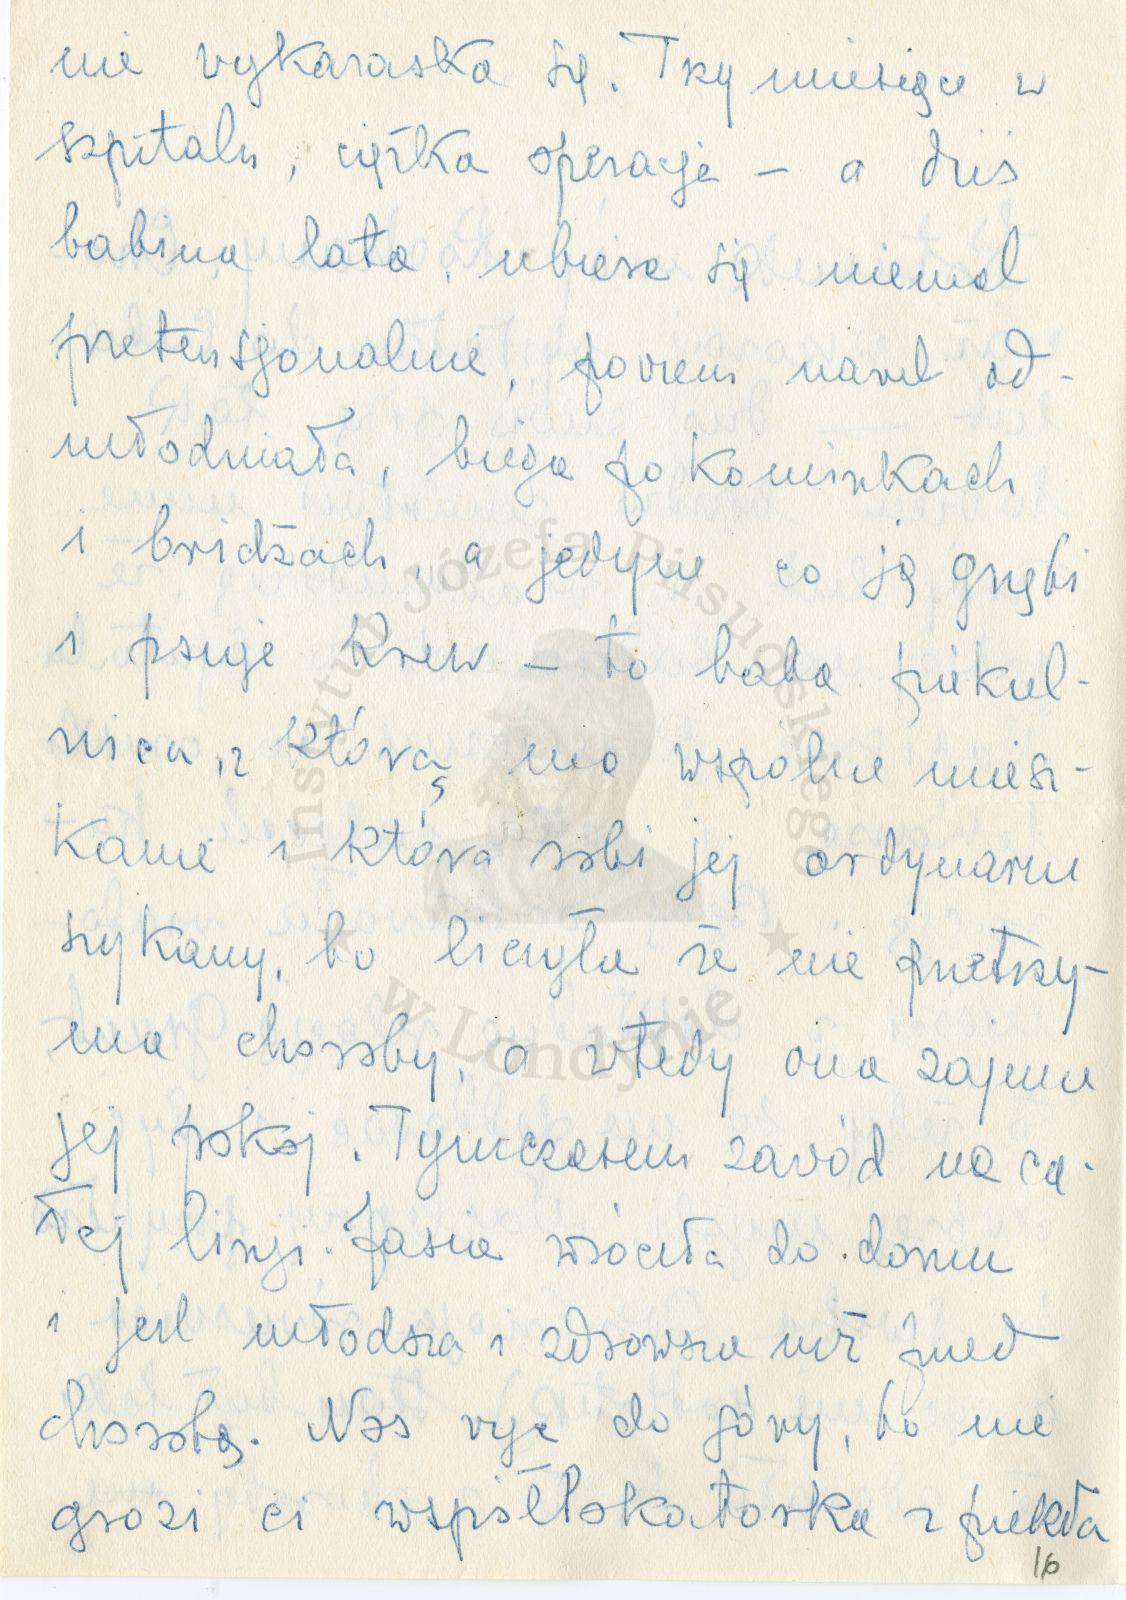 nie wykaraska się. Trzy miesiące w
szpitalu, ciężka operacja – a dziś
babina lata, ubiera się niemal
pretensjonalnie, powiem nawet od-
młodniała, biega po kominkach
i bridżach, a jedyne co ją gnębi
i psuje krew – to baba piekiel-
nica, z którą ma wspólne miesz-
kanie i która robi jej ordynarne
szykany, bo liczyła że nie przetrzy-
ma choroby, a wtedy ona zajmie
jej pokój. Tymczasem zawód na ca-
łej linji. Jasia wróciła do domu
i jest młodsza i zdrowsza niż przed
chorobą. Nos więc do góry, bo nie
grozi ci współlokatorka z piekła
16
Instytut Józefa Piłsudskiego
w Londynie